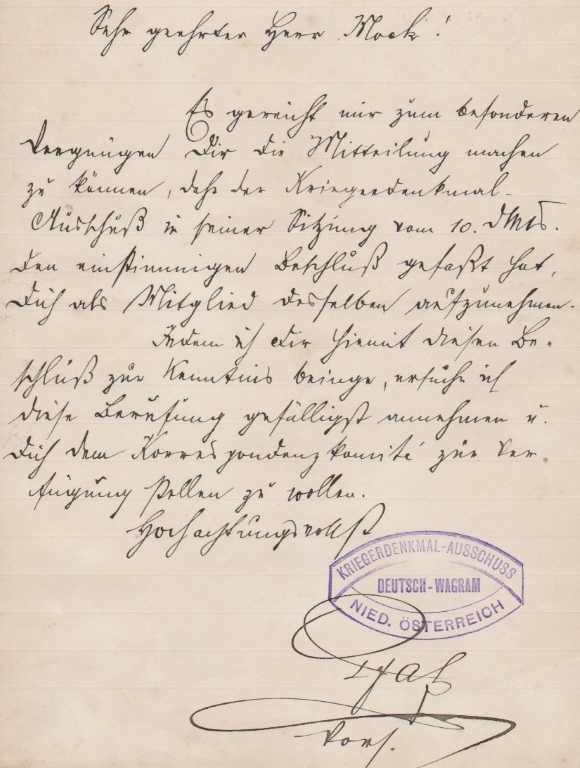 Sehr geehrter Herr Mock!
Es gereicht mir zum besonderen
Vergnügen Dir die Mitteilung machen
zu können, daß der Kriegerdenkmal-
Ausschuß in seiner Sitzung vom 10. dMts.
den einstimmigen Beschluß gefaßt hat,
Dich als Mitglied desselben aufzunehmen.
Indem ich Dir hiemit diesen Be-
schluß zur Kenntnis bringe, ersuche ich
diese Berufung gefälligst annehmen u.
Dich dem Korrespondenzkomité zur Ver-
fügung stellen zu wollen.
Hochachtungsvollst
KRIEGERDENKMAL-AUSSCHUSS
DEUTSCH-WAGRAM
NIED. ÖSTERREICH
Vors.